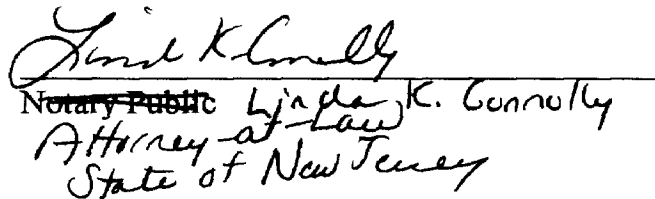 Linda K Connolly
Notary Public Linda K. Connolly
Attorney at Law
State of New Jersey